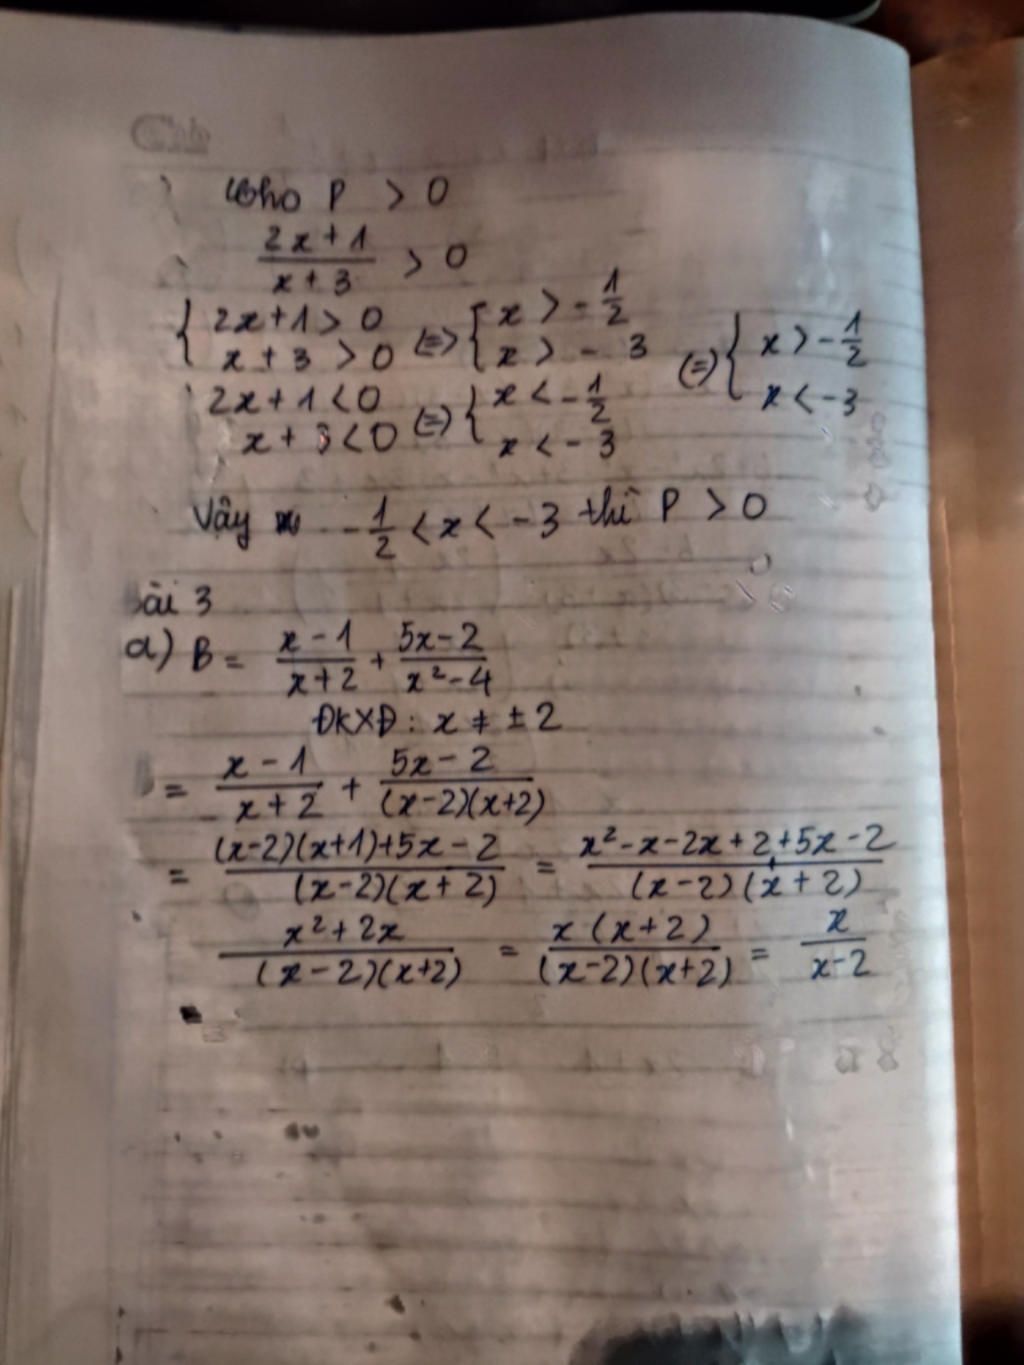 Cho P > 0
2x+1/x+3 > 0
{2x+1 > 0 (=) {x > -1/2 (=) {x > -1/2
x+3 > 0 x > -3 x < -3
2x+1 < 0 (=) {x < -1/2
x+3 < 0 x < -3
Vậy -1/2 < x < -3 thì P > 0
Bài 3
a) B = x-1/x+2 + 5x-2/x²-4
ĐKXĐ: x ≠ ±2
B = x-1/x+2 + 5x-2/(x-2)(x+2)
= (x-2)(x+1)+5x-2/(x-2)(x+2) = x²-x-2x+2+5x-2/(x-2)(x+2)
x²+2x/(x-2)(x+2) = x(x+2)/(x-2)(x+2) = x/x-2
=